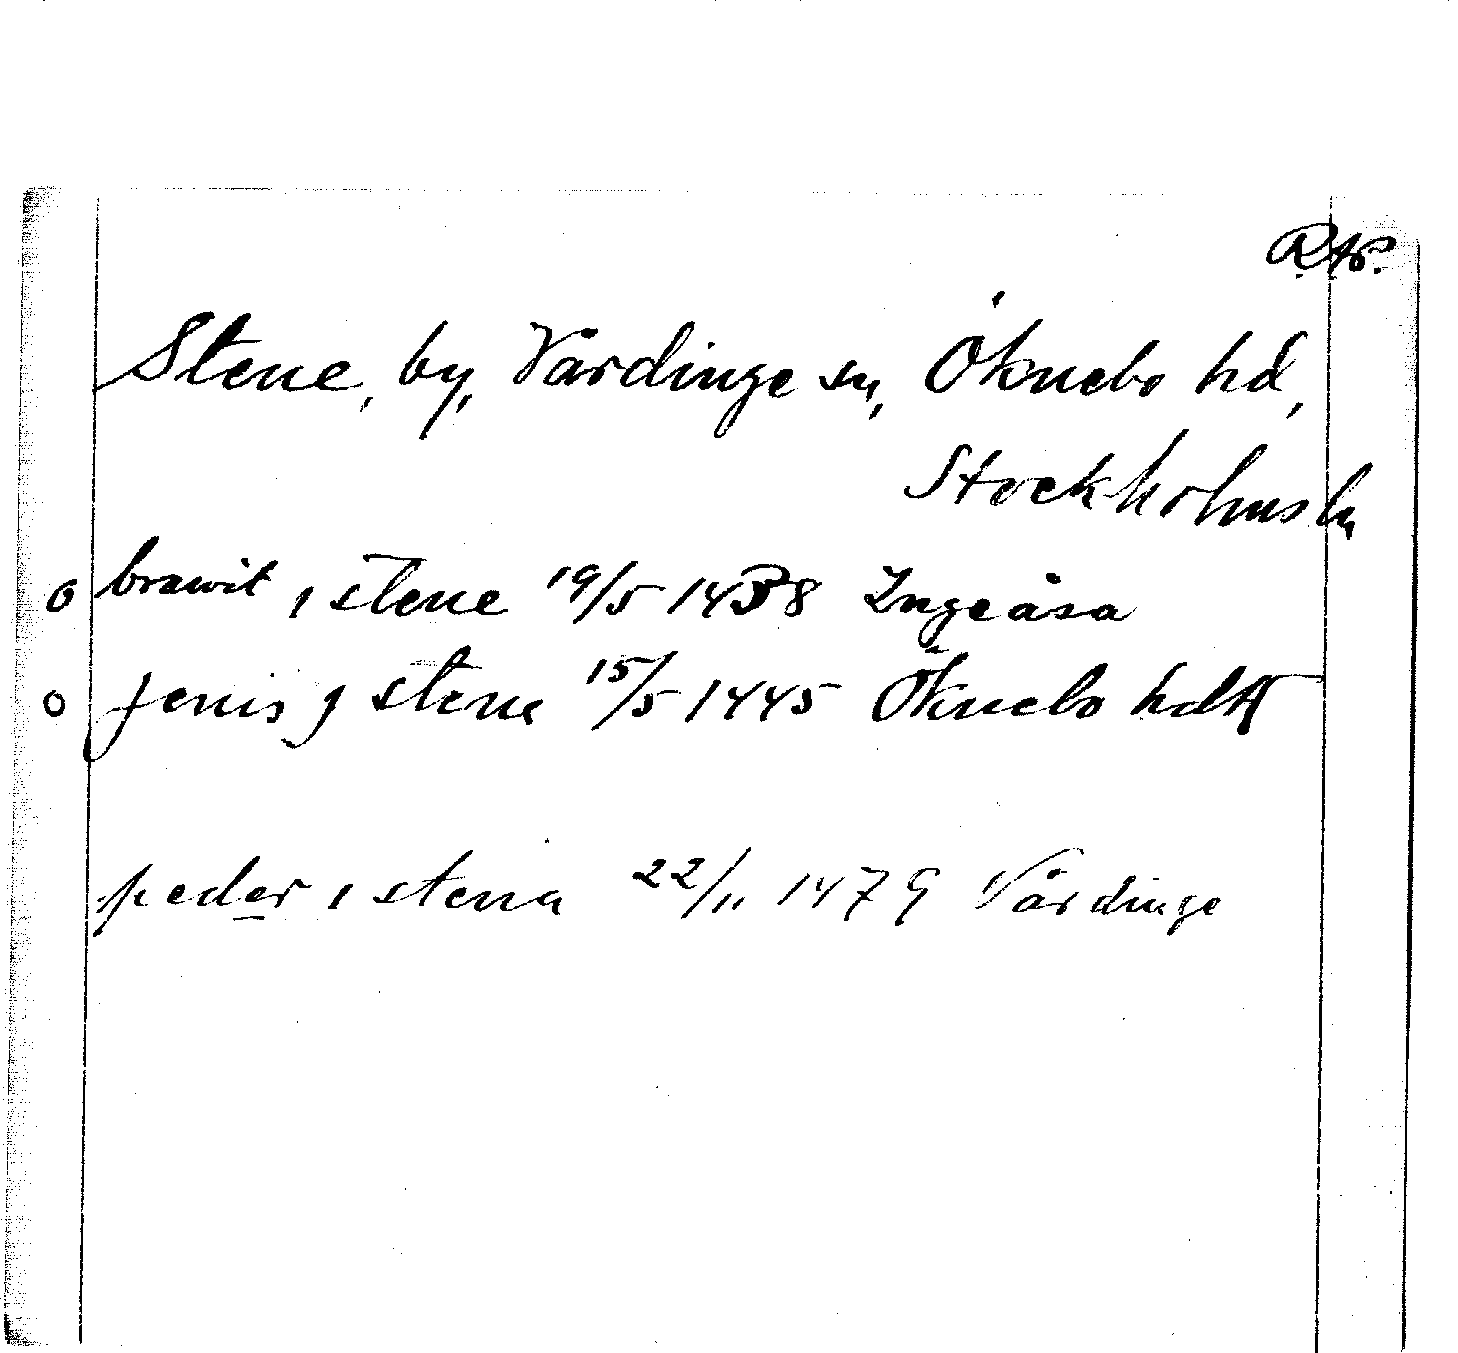 RAp.
Stene, by, Vårdinge sn, Öknebo hd,
Stockholms ln
o brawit ı stene 19/5 1438 Ingeåsa
o jenis j stene 15/5 1445 Öknebo hdtt
peder ı stena 22/11 1479 Vårdinge